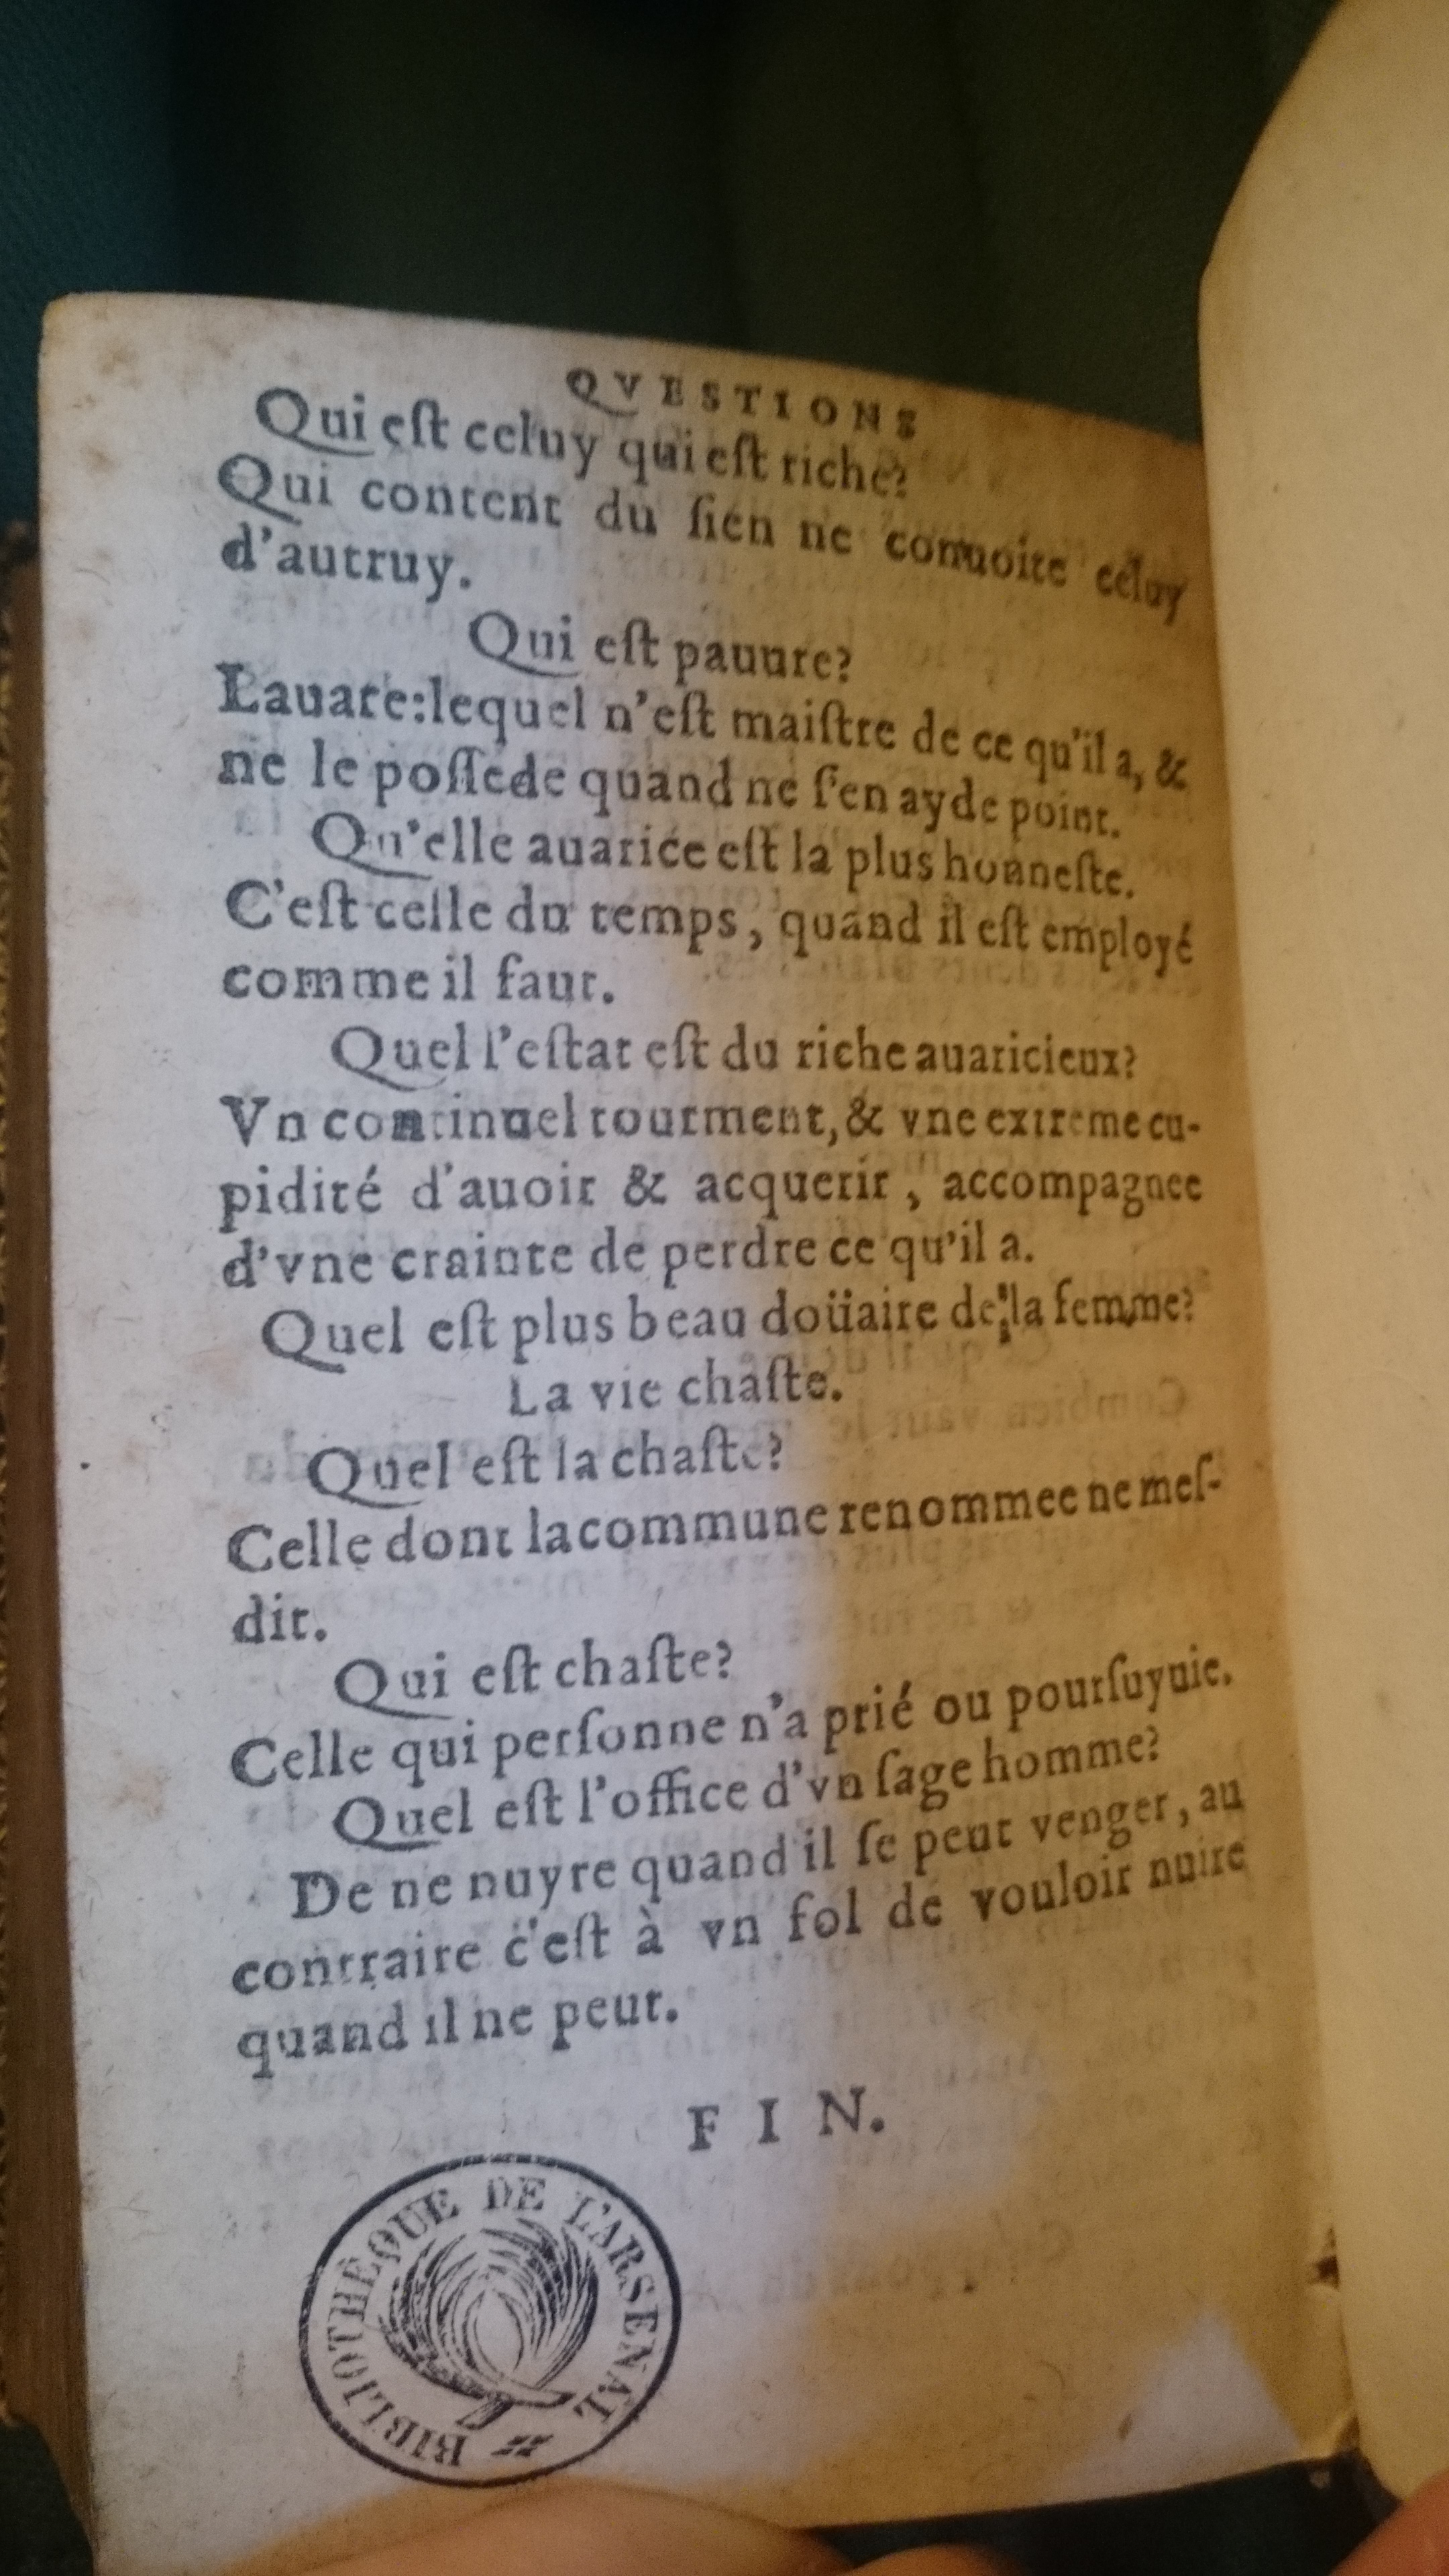 QVESTIONS
Qui eſt celuy qui eſt riche?
Qui content du ſien ne conuoite celuy
d'autruy.
Qui eſt pauure?
Lauare:lequel n'eſt maiſtre de ce qu'il a, &
ne le poſſede quand ne ſ'en ayde point.
Qu'elle auarice eſt la plus honneſte.
C'eſt celle du temps, quand il eſt employé
comme il faut.
Quel l'eſtat eſt du riche auaricieux?
Vn continuel tourment, & vne extreme cu-
pidité d'auoir & acquerir, accompagnee
d'vne crainte de perdre ce qu'il a.
Quel eſt plus beau doüaire de la femme?
La vie chaſte.
Quel eſt la chaſte?
Celle dont la commune renommee ne meſ-
dit.
Qui eſt chaſte?
Celle qui perſonne n'a prié ou pourſuyuie.
Quel eſt l'office d'vn ſage homme?
De ne nuyre quand il ſe peut venger, au
contraire c'eſt à vn fol de vouloir nuire
quand il ne peut.
FIN.
BIBLIOTHÈQUE DE L'ARSENAL